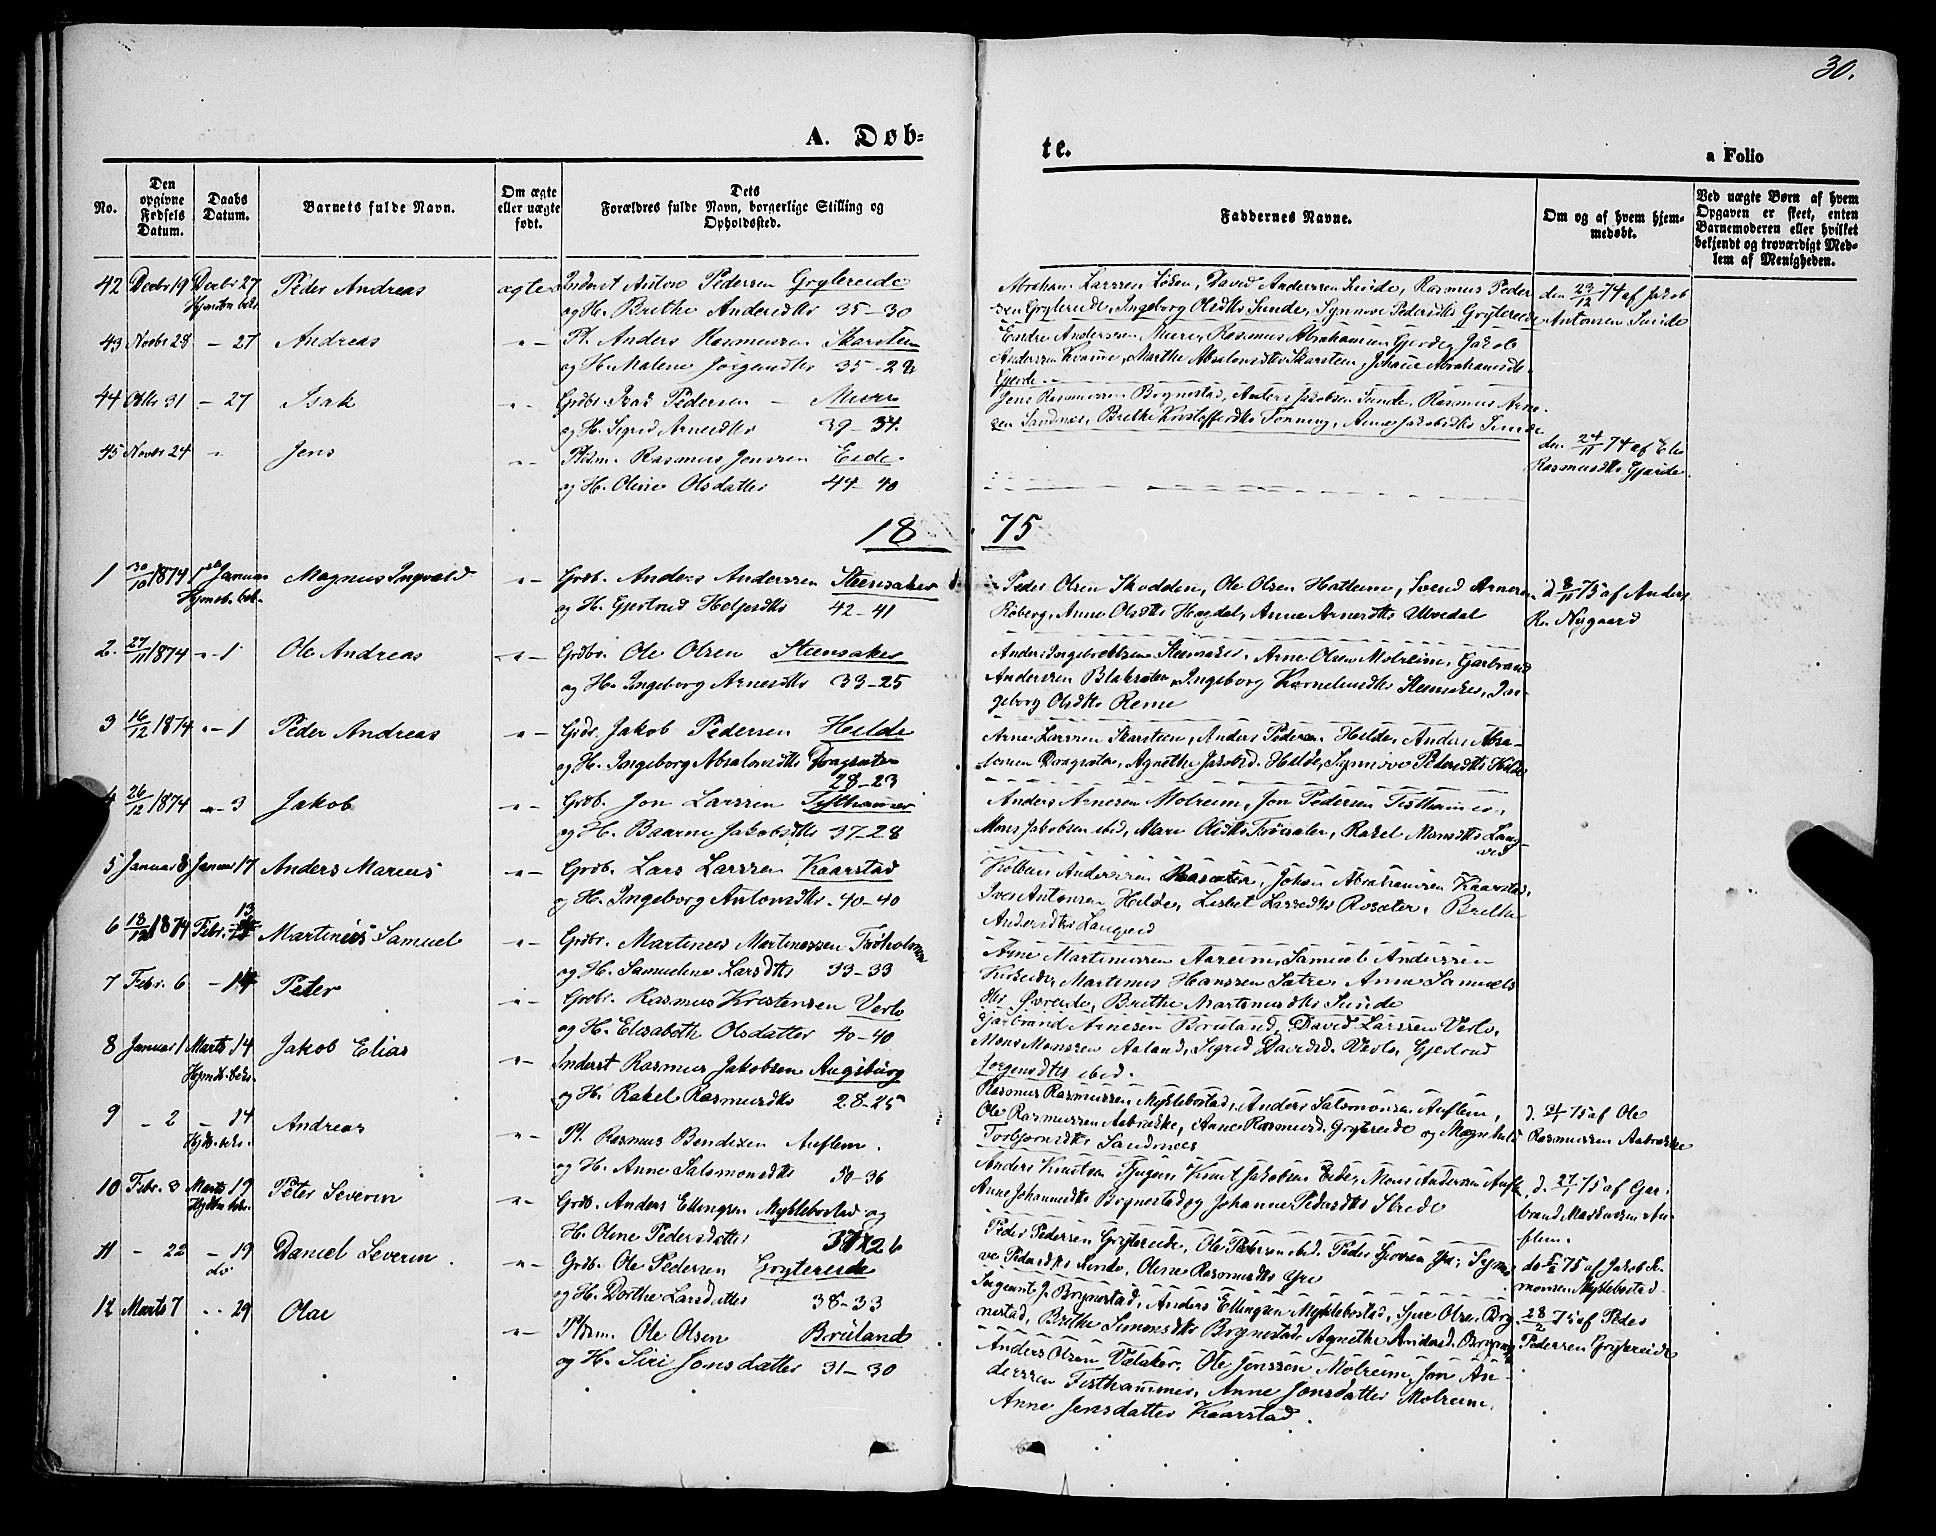 30.
A. Døb-
te.
a Folio
No.
Den opgivne Fødsels Datum.
Daabs Datum.
Barnets fulde Navn.
Om ægte eller uægte født.
Dets Forældres fulde Navn, borgerlige Stilling og Opholdssted.
Faddernes Navne.
Om og af hvem hjemmedøbt.
Ved uægte Børn af hvem Opgaven er skeet, enten Barnemoderen eller hvilket bekjendt og troværdigt Medlem af Menigheden.
42 Decbr 19 Decbr 27 Peder Andreas ægte Inderst Anton Pedersen Grytereide
og H. Brithe Andersdtr 35-30
Abraham Larssen Løken, David Anderssen Sunde, Rasmus Peder
sen Grytereide, Ingeborg Olsdtr Sunde, Synnove Pedersdtr Grytereide
den 23/12 74 af Jakob
Antonsen Sunde
43 Novbr 28 - 27 Andreas "- Pl. Anders Rasmussen Skarsteen
og H. Malene Jørgensdtr 35-28
Endre Anderssen Muri, Rasmus Abrahamsen Gjerde, Jakob
Anderssen Kvame, Marthe Absalonsdtr Skarsteen, Johane Abrahamsd.
Gjerde
44 Octbr 31 - 27 Isak "- Grdbr. Isak Pedersen - Muri
og H. Sigrid Arnesdtr 39-34
Jens Rasmussen Brynestad, Anders Jakobsen Sunde, Rasmus Arne-
sen Sandnes, Brithe Kristoffersdtr Tonning, Anne Jakobsdtr Sunde
45 Novbr 24 " Jens "- Pldsm. Rasmus Jonssen Eide
og H. Oline Olsdatter 44-40
den 24/11 74 af Eli
Rasmusdtr Gjerde
18 75
1 30/10 1874 1ste Januar Magnus Ingvald "- Grdb. Anders Anderssen Steensaker
og H. Gjertrud Heljesdtr 42-41
Peder Olsen Skodden, Ole Olsen Hatlem, Svend Arnesen
Roberg, Anne Olsdtr Hogdal, Anne Arnesdtr Ulvedal
d 8/11 75 af Anders
R. Nygaard
2. 27/11 1874 "-1 Ole Andreas "- Grdbr. Ole Olsen Steensaker
og H. Ingeborg Arnesdtr 33-25
Anders Ingebrethsen Steensaker, Arne Olsen Molreim, Garbrand
Anderssen Blaksæter, Ingeborg Kornelusdtr Steensaker, In-
geborg Olsdtr Reme
3 16/12 1874 "-1 Peder Andreas "- Grdb. Jakob Pedersen Hilde
og H. Ingeborg Absalonsdtr Dragsæter
28-23
Arne Larssen Skarsteen, Anders Pedersen Hilde, Anders Absa-
lonsen Dragsæter, Agnethe Jakobsd. Hilde, Synnove Pedersdtr Hilde
4 26/12 1874 "-3 Jakob "- Grdb. Jon Larssen Tisthammer
og H. Baarne Jakobsdtr 37-28
Anders Arnesen Molreim, Jon Pedersen Tisthammer,
Mons Jakobsen ibid, Mari Olsdtr Trøsæter, Rakel Monsdtr Lang-
vid
5 Januar 8 Januar 17 Anders Marius "- Grdb. Lars Larssen Kaarstad
og H. Ingeborg Antonsdtr 40-40
Kolbein Anderssen Rosæter, Johan Abrahamsen Kaarstad,
Iver Antonsen Hilde, Lisbet Larsdtr Rosæter, Brithe
Andersdtr Langvid
6 18/12 1874 Febr. 13 Martinus Samuel "- Grdbr. Martinus Martinussen
og H. Samueline Larsdtr 33-33
Arne Martinussen Aareim, Samuel Anderssen
Martinus Hanssen Sætre, Anne Samuels
dtr Færeide, Brithe Martinusdtr Sunde
7 Febr. 6 - 14 Peter "- Grdbr. Rasmus Kristensen Verlo
og H. Elisabeth Olsdatter 40-40
Garbrand Arnesen Bruland, David Larssen Verlo,
Mons Monssen Aaland, Sigrid Davidsd. Verlo, Gjertrud
Jørgensdtr ibid.
8 Januar 1 Marts 14 Jakob Elias "- Inderst Rasmus Jakobsen Augsburg
og H. Rakel Rasmusdtr 28-25
Rasmus Rasmussen Myklebostad, Anders Salomonsen Auflem,
Ole Rasmussen Aabrække, Anne Rasmusd. Grytereide og Magnhild
Torbjørnsdtr Sandnes
d. 21/1 75 af Ole
Rasmussen Aabrække
9 - 2 - 14 Andreas "- Pl. Rasmus Bendixen Auflem.
og H. Anne Salomonsdtr 50-36
Anders Knutsen Tjugen, Knut Jakobsen Eide, Mons Anderssen Aufle
Anne Johannesdtr Brynestad og Johanne Pedersdtr Strede
d. 27/1 75 af Gar-
brand Markussen Au-
flem.
10 Febr. 3 Marts 19 Peter Severin "- Grdb. Anders Ellingsen Myklebostad og
H. Oline Pedersdatter 37-26
Peder Pedersen Grytereide, Ole Pedersen ibid. Peder Sjursen Yri, Synno
ve Pedersdtr Sunde, Oline Rasmusdtr Yri
do 5/2 75 af Jakob S.
monsen Myklebostad
11 - 22 - 19 do Daniel Severin. "- Grdb. Ole Pedersen Gryterede
og H. Dorthe Larsdatter 38-33
Sergeant J. Brynestad, Anders Ellingsen Myklebostad, Sjur Olsen Bry
nestad, Brithe Simonsdtr Brynestad, Agnethe
28/2 75 af Peder
Pedersen Gryterede
12 Marts 7 " - 29 Olai "- Pldsm. Ole Olsen Bruland
og H. Siri Jonsdatter 31-30
Anders Olsen Vølaker, Ole Jonssen Molreim, Jon An-
derssen Tisthammer, Anne Jonsdatter Molreim.
Anne Jensdatter Kaarstad.